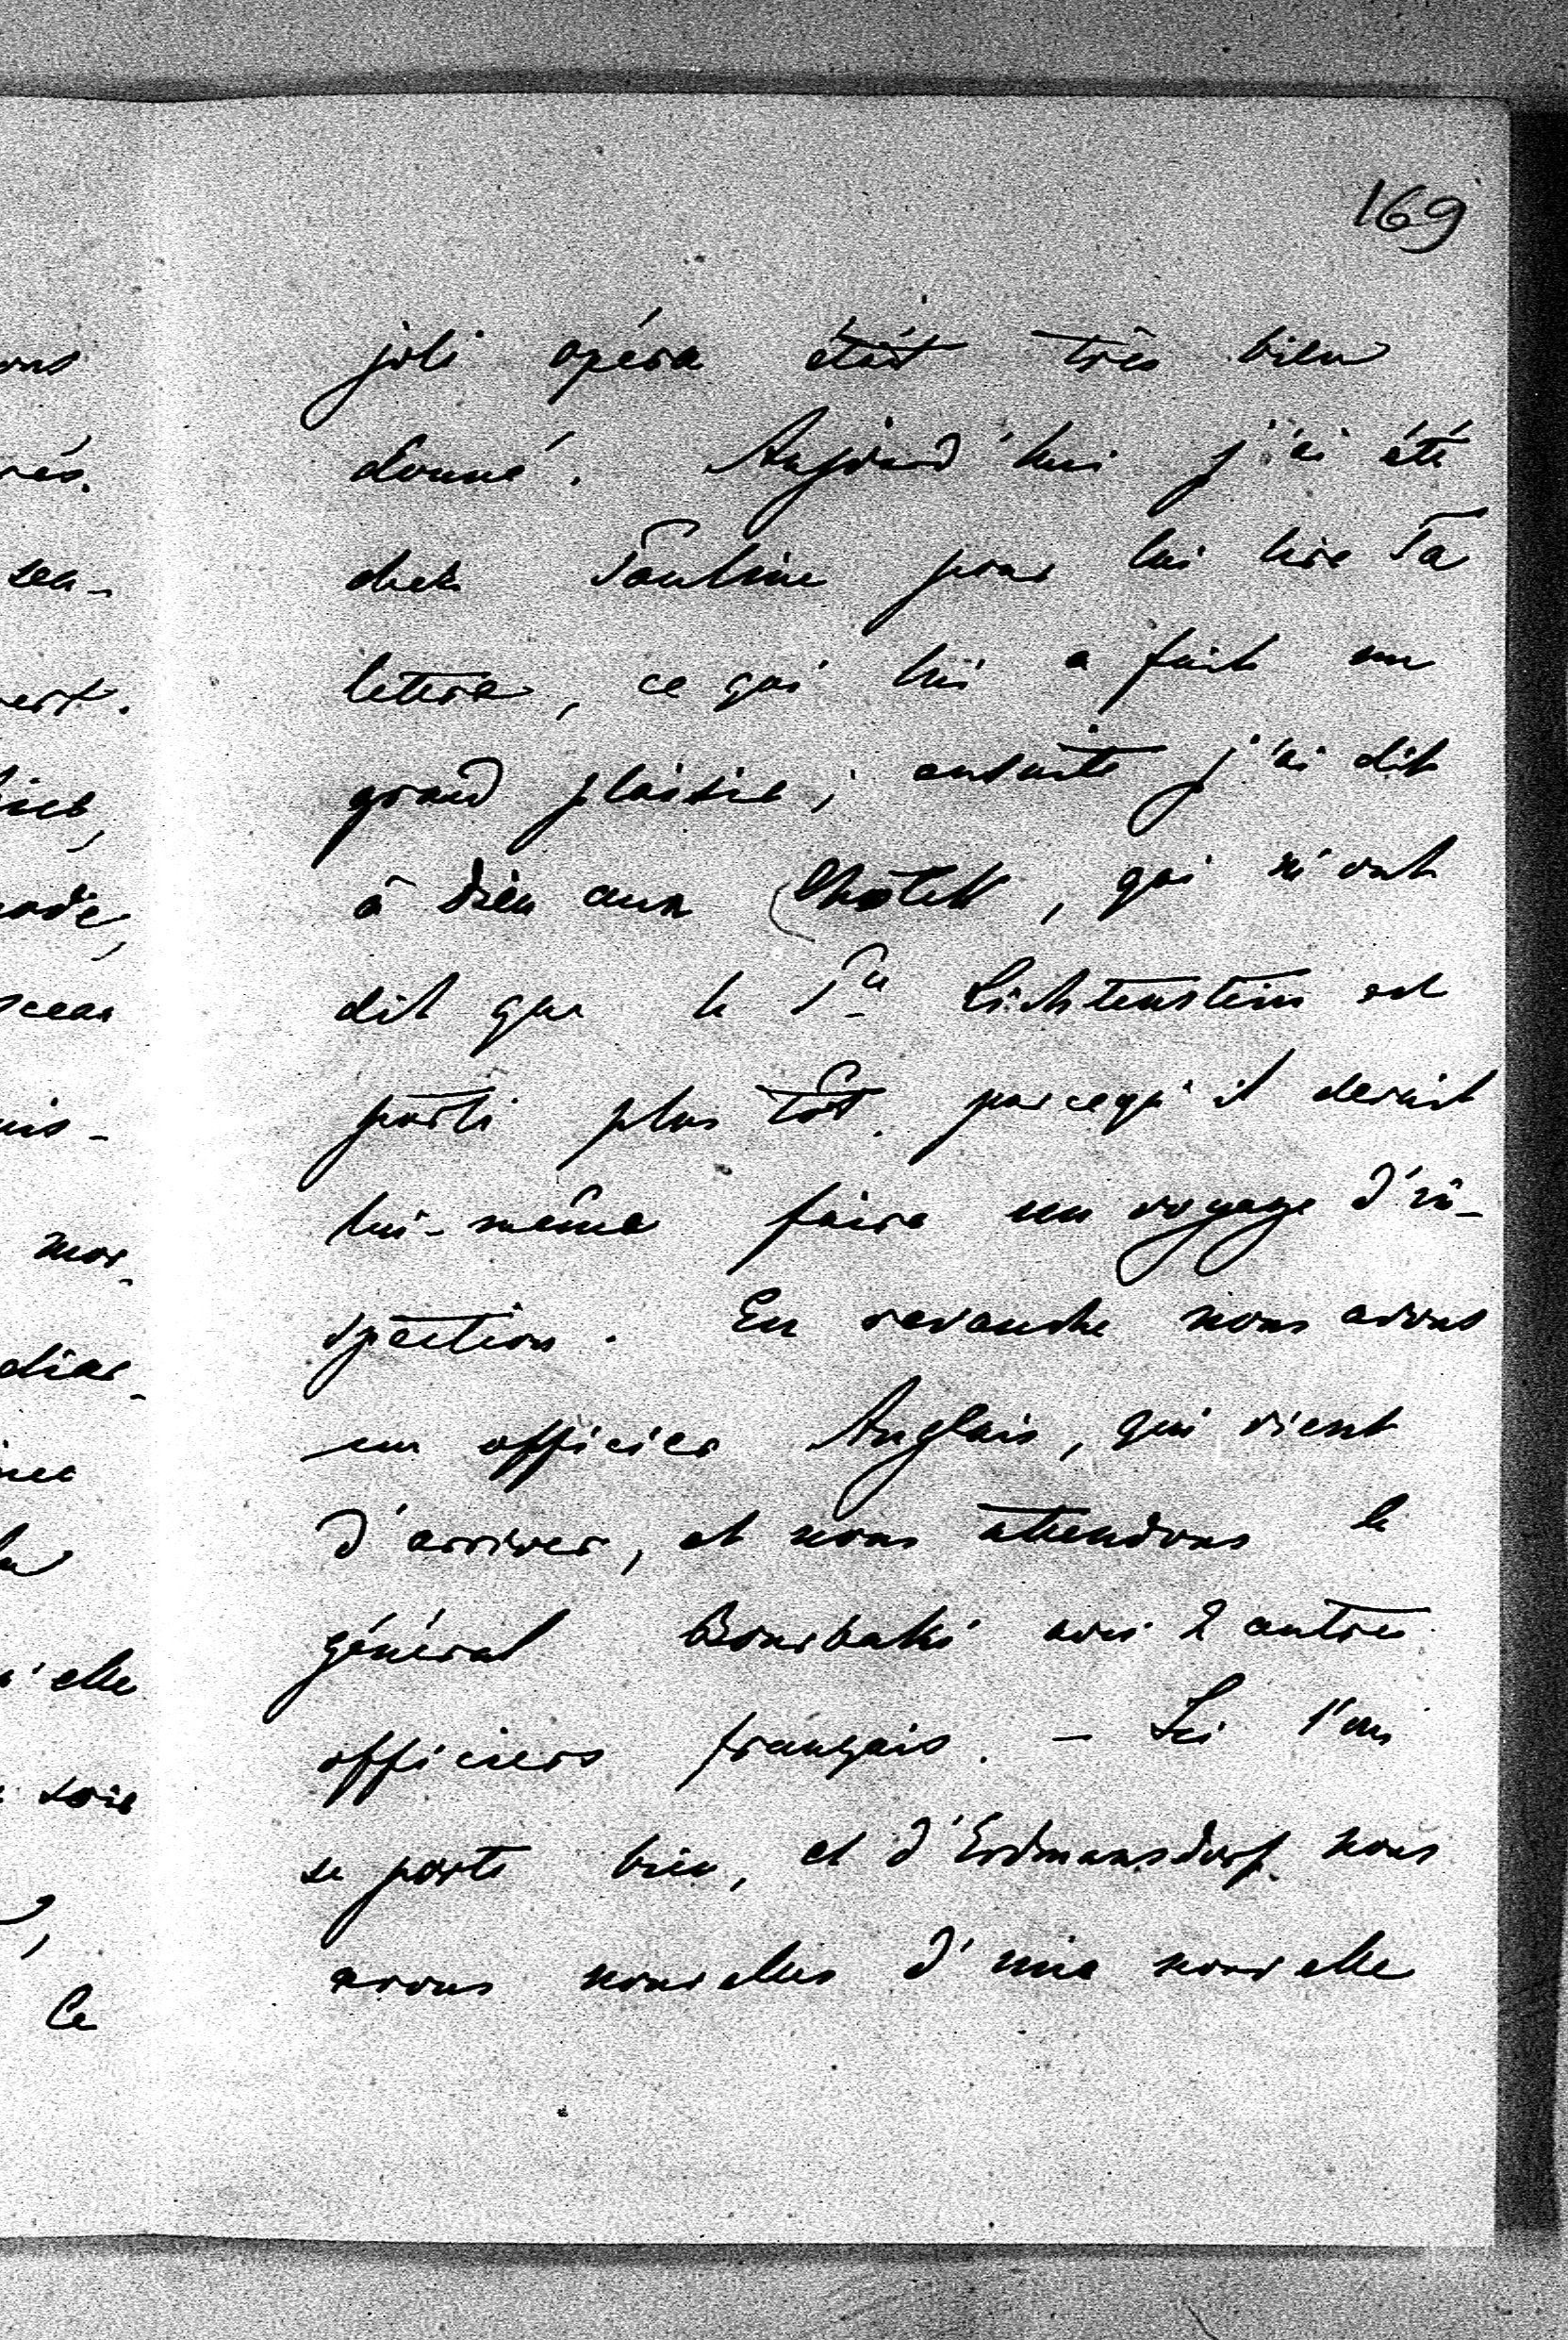 169
joli opéra était très bien
donné. Aujourd'hui j'ai été
chez Pauline pour lui lire Ta
lettre, ce qui lui a fait un
grand plaisir; ensuite j'ai dit
à Dieu aux Chotek, qui m'ont
dit que le Pce Lichtenstein est
parti plus tôt parcequ'il devait
lui-même faire un voyage d'in-
spection. En revanche nous avons
un officier Anglais, qui vient
d'arriver, et nous attendons le
général Bourbaki avec 2 autres
officiers français. – Ici l'on
se porte bien, et d'Erdmansdorf nous
avons nouvelles d'une nouvelle